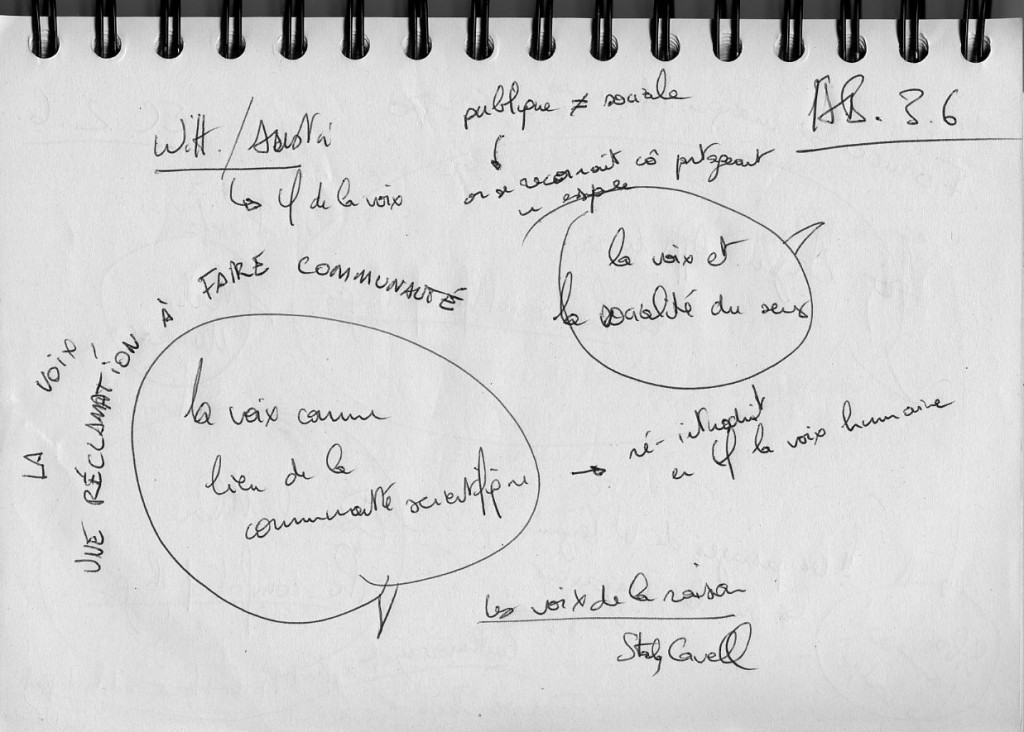 AB. 3.6
Witt. / Austin
↳ φ de la voix
publique ≠ sociale
↓
on se reconnaît cô partageant
un espace
la voix et
la socialité du sens
LA VOIX
UNE RÉCLAMATION À FAIRE COMMUNAUTÉ
la voix comme
lien de la
communauté scientifique
→ ré-introduit
en φ la voix humaine
les voix de la raison
Stanley Cavell